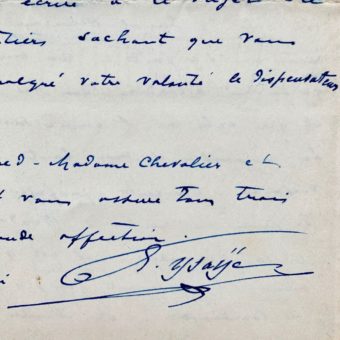 sachant que vous
votre volonté le dispensateur
Madame Chevalier et
vous assure tous trois
affection.
E. Ysaÿe